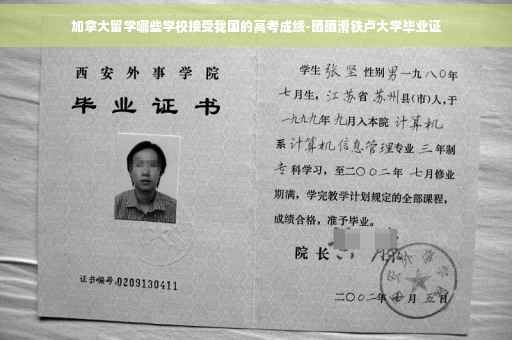 加拿大留学哪些学校接受我国的高考成绩-晒晒滑铁卢大学毕业证
西安外事学院
毕业证书
证书编号:0209130411
学生 张坚 性别 男 一九八〇年
七月生，江苏省 苏州 县(市)人,于
一九九九年 九月入本院 计算机
系 计算机信息管理 专业 三 年制
专 科学习，至二〇〇二年 七月修业
期满，学完教学计划规定的全部课程，
成绩合格，准予毕业。
院长
二〇〇二年 七月 五日